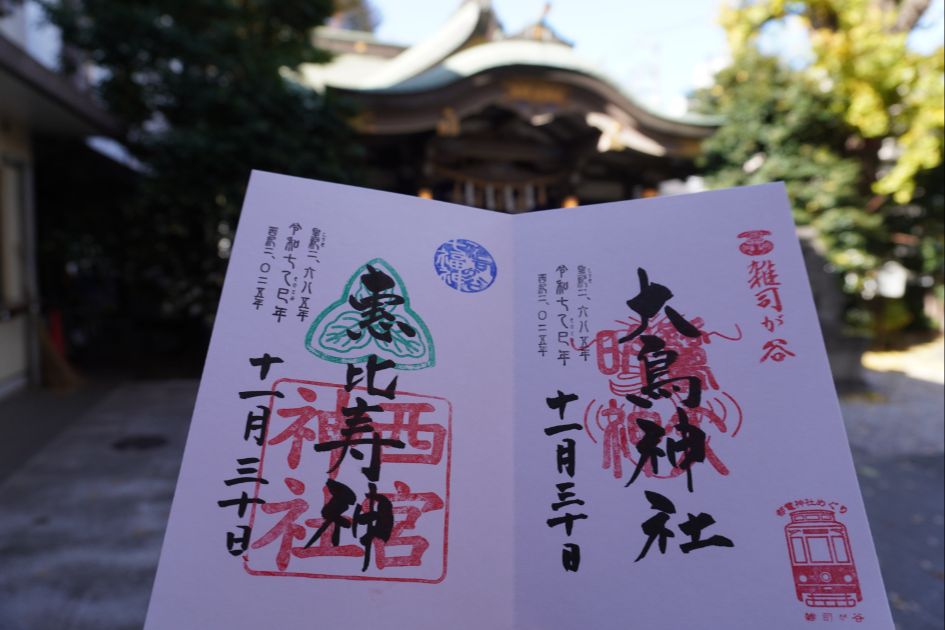 雑司が谷
大鳥神社
皇紀二、六八五年
令和七乙巳年
西紀二、〇二五年
十一月三十日
都電神社めぐり
雑司が谷
恵比寿神
西宮
神社
福神
皇紀二、六八五年
令和七乙巳年
西紀二、〇二五年
十一月三十日